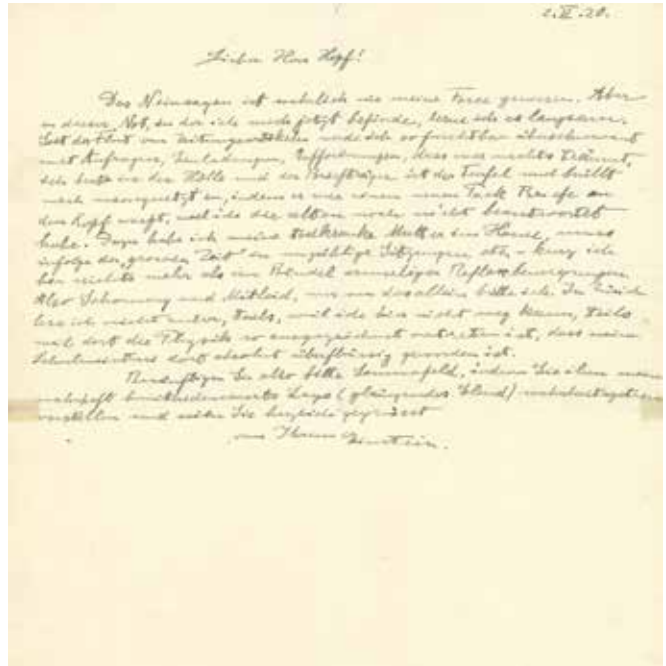 2.II.20.
Lieber Herr Hopf!
Das Neinsagen ist wahrlich nie meine Force gewesen. Aber
in dieser Not, in der ich mich jetzt befinde, lerne ich es langsam.
Seit der Flut von Zeitungsartikeln werde ich so furchtbar überschwemmt
mit Anfragen, Einladungen, Aufforderungen, dass mir nachts träumt,
ich brate in der Hölle und der Briefträger ist der Teufel und brüllt
mich unausgesetzt an, indem er mir einen neuen Pack Briefe an
den Kopf wirft, weil ich die alten noch nicht beantwortet
habe. Dazu habe ich meine todkranke Mutter im Hause, muss
infolge der „grossen Zeit" in unzählige Sitzungen etc. – kurz ich
bin nichts mehr als ein Bündel armseliger Reflexbewegungen.
Also Schonung und Mitleid, nur um das allein bitte ich. In Zürich
lese ich nicht mehr, teils, weil ich hier nicht weg kann, teils
weil dort die Physik so ausgezeichnet vertreten ist, dass meine
dort absolut überflüssig geworden ist.
Besänftigen Sie also bitte Sommerfeld, indem Sie ihm meine
bemitleidenswerte Lage (glänzendes Elend) wahrheitsgetreu
vorstellen und seien Sie herzlich gegrüsst
von Ihrem Einstein.